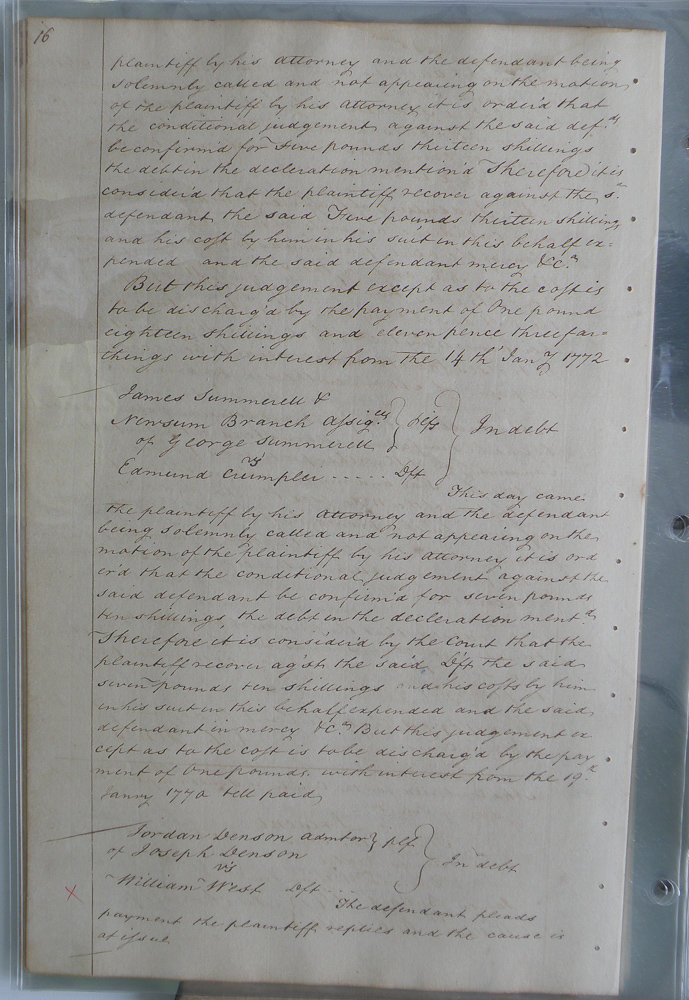 16
plaintiff by his attorney and the defendant being
solemnly called and not appearing on the motion
of the plaintiff by his attorney it is order'd that
the conditional judgement against the said def.ts
be confirm'd for Five pounds thirteen shillings
the debt in the decleration mention'd Therefore it is
consider'd that the plaintiff recover against the s.d
defendant the said Five pounds thirteen shillings
and his cost by him in his suit in this behalf ex=
pended and the said defendant mercy &c.a
But this judgement except as to the cost is
to be discharg'd by the payment of One pound
eighteen shillings and eleven pence three far=
things with interest from the 14th Jan.y 1772
James Summerell &
Newsum Branch assig.ees } plfs } In debt
of George Summerell
vs
Edmund Crumpler ..... Dft
This day came
the plaintiff by his attorney and the defendant
being solemnly called and not appearing on the
motion of the plaintiff by his attorney it is ord
er'd that the conditional judgement against the
said defendant be confirm'd for seven pounds
ten shillings the debt in the decleration ment.d
Therefore it is consider'd by the Court that the
plaintiff recover ag'st the said Dft the said
seven pounds ten shillings and his costs by him
in his suit in this behalf expended and the said
defendant in mercy &c.a But this judgement ex
cept as to the cost is to be discharg'd by the pay
ment of One pounds with interest from the 19.th
Janry 1770 till paid
Jordan Denson admtor } plf }
of Joseph Denson } In debt
vs
William West Dft ...
The defendant pleads
payment the plaintiff replies and the cause is
at issue